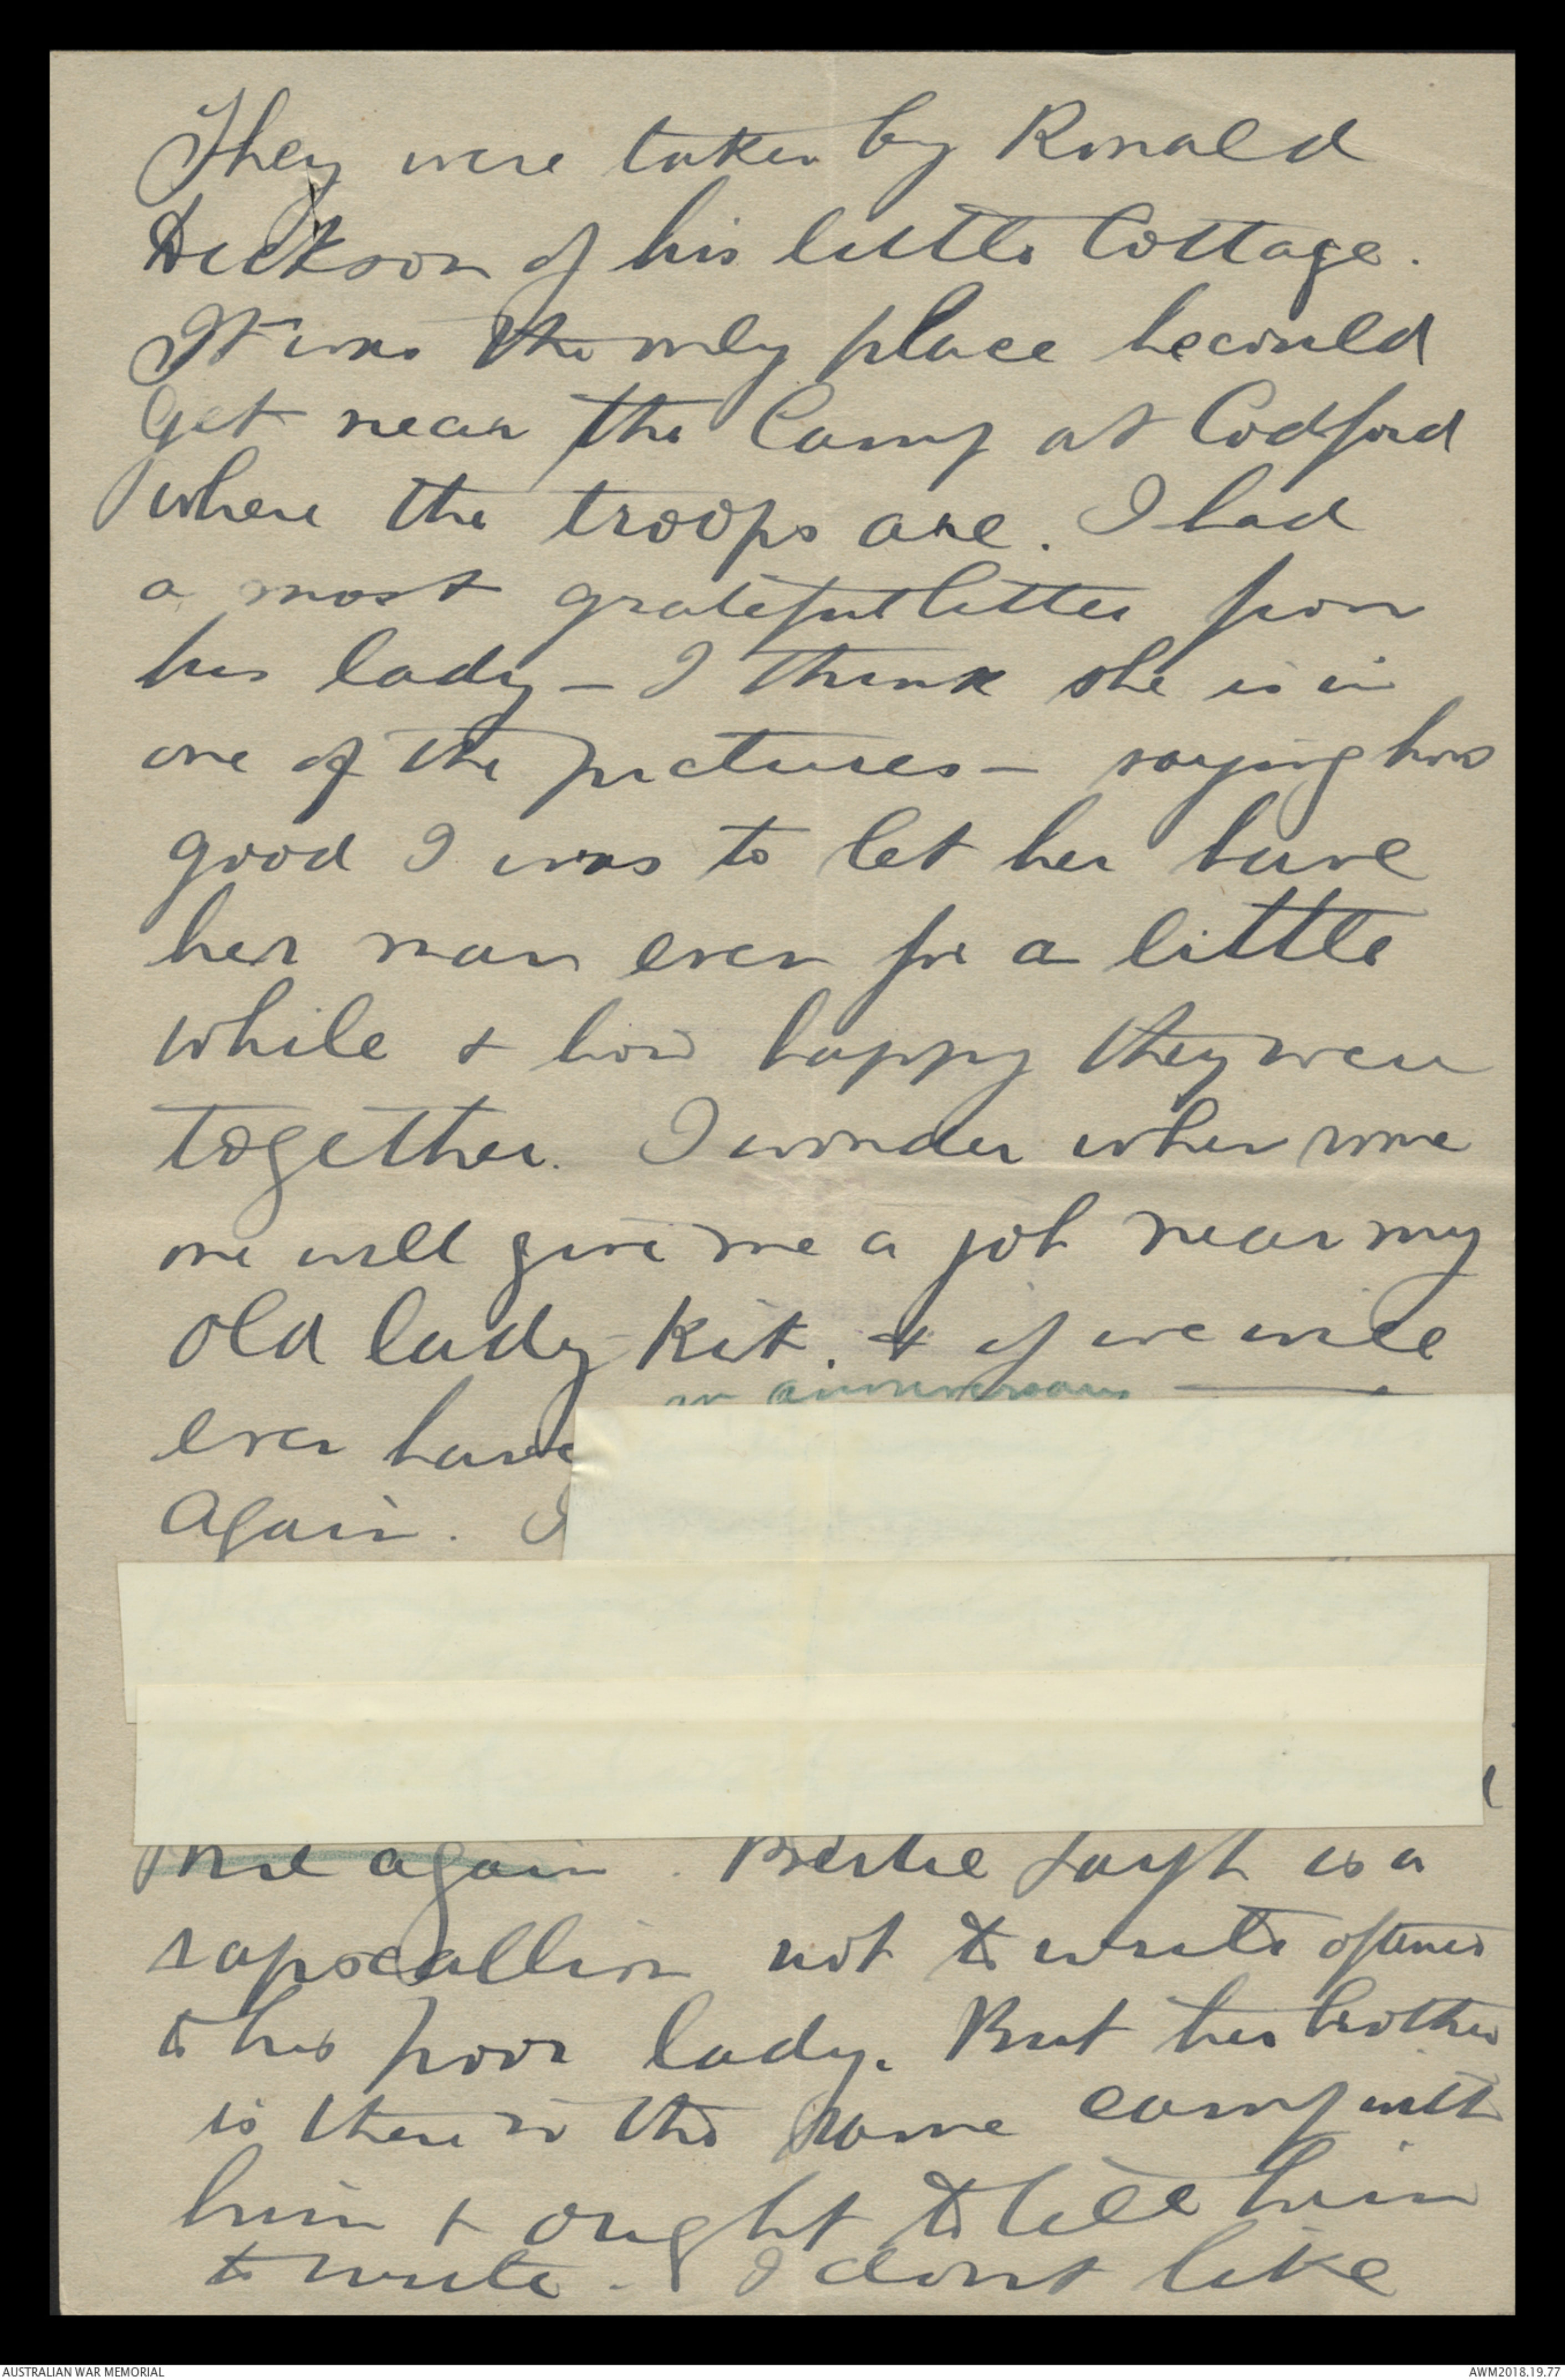 They were taken by Ronald
Dickson of his little Cottage.
It was the only place he could
get near the Camp at Codford
where the troops are. I had
a most grateful letter from
his lady – I think she is in
one of the pictures – saying how
good I was to let her have
her man even for a little
while & how happy they were
together. I wonder when some
one will give me a job near my
old lady Kit. & if we will
anniversary
ever have
again. I
again. Bertie is a
rapscallion not to write oftener
to his poor lady. But her brother
is there in the same camp with
him & ought to tell him
to write. I dont like
AUSTRALIAN WAR MEMORIAL
AWM2018.19.77